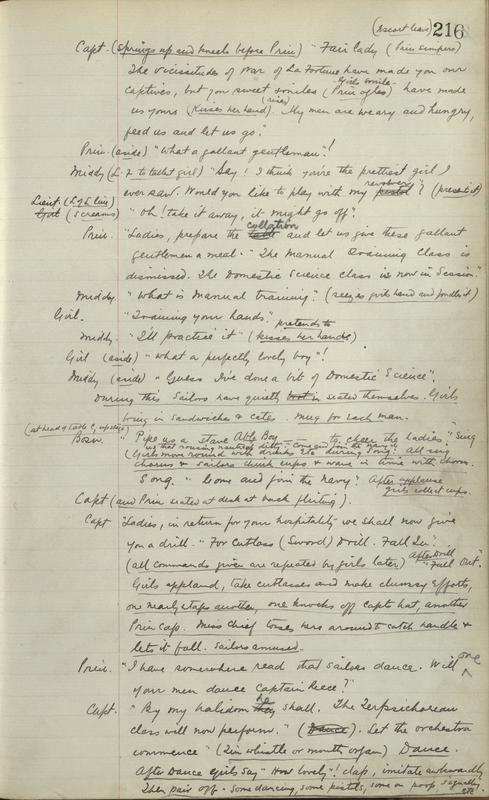 (Escort leave) 216
Capt. (Springs up and kneels before Prin) "Fair lady (Prin simpers)
The vicissitudes of war of La Fortune have made you our
Girls smile
captives, but you sweet smiles (Prin ogles) have made
us yours (Kisses her hand). (rises) My men are weary and hungry,
feed us and let us go."
Prin. (aside) "What a gallant gentleman"!
Middy (L. 2 to tallest girl) "Say! I think you're the prettiest girl I
ever saw. Would you like to play with my pistol revolver"? (presents it)
Lieut. (L of L line)
Girl (screams) "Oh! take it away, it might go off".
Prin. "Ladies, prepare the table collation and let us give these gallant
gentlemen a meal." "The Manual Training Class is
dismissed. The Domestic Science Class is now in Session."
Middy. "What is Manual training"? (seizes girls hand and fondles it)
Girl. "Training your hands".
Middy. "I'll practise it" (pretends to kisses her hands)
Girl (aside) "What a perfectly lovely boy"!
Middy (aside) "Guess I've done a bit of Domestic Science".
During this Sailors have quietly seated themselves. Girls
bring in Sandwiches & cates. Mug for each man.
(at head of table C, upstage)
Bosun. "Pipe us a stave Able Boy to cheer the ladies." "Sing
us that rousing nautical ditty - come and join the navy"
(Girls move round with drinks etc during song) All sing
chorus & sailors clink cups & wave in time with chorus.
Song. "Come and join the Navy! After applause
girls collect cups.
Capt (and Prin seated at desk at back flirting).
Capt "Ladies, in return for your hospitality we shall now give
you a drill. "For Cutlass (Sword) Drill. Fall In".
(all commands given are repeated by girls later) After Drill "Fall Out".
Girls applaud, take cutlasses and make clumsy efforts,
one nearly stabs another, one knocks off Capts hat, another
Prin Cap. Miss Chief tosses hers around to catch handle &
lets it fall. Sailors amused.
Prin. "I have somewhere read that sailors dance. Will one
your men dance Captain Reece?"
Capt. "By my halidom they he shall. The Terpsichorean
class will now perform." (Dance). Let the orchestra
commence" (Tin whistle or mouth organ) Dance.
After Dance girls say "How lovely"! clap, imitate awkwardly
Then pair off. Some dancing, some pistols, some on poop squealing
etc.